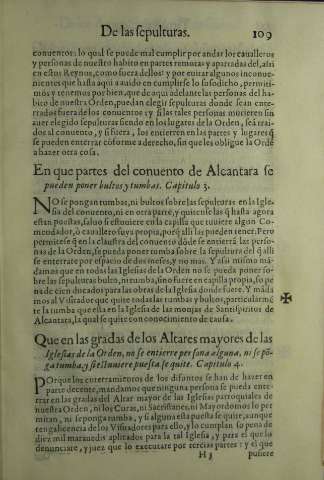 De las sepulturas. 109
conuentos: lo qual se puede mal cumplir por andar los caualleros
y personas de nuestro habito en partes remotas y apartadas del, assi
en estos Reynos, como fuera dellos: y por euitar algunos inconue-
nientes que hasta aqui a auido en cumplirse lo susodicho, permiti-
mos y tenemos por bien, que de aqui adelante las personas del ha-
bito de nuestra Orden, puedan elegir sepulturas donde sean ente-
rrados fuera de los conuentos: y si las tales personas murieren sin
auer elegido sepulturas siendo en los lugares de la Orden, seã trai-
dos al conuento, y si fuera, los entierren en las partes y lugares q̃
se pueden enterrar cõforme a derecho, sin que les obligue la Ordẽ
a hazer otra cosa.
En que partes del conuento de Alcantara se
pueden poner bultos y tumbas. Capitulo 3.
NO se pongan tumbas, ni bultos sobre las sepulturas en la Igle-
sia del conuento, ni en otra parte, y quitense las q̃ hasta agora
estan puestas, saluo si estuuiere en la capilla que tuuiere algun Co-
mendador, ò cauallero suya propia, porq̃ alli las pueden tener. Pero
permitese q̃ en la claustra del conuento dõde se entierrã las perso-
nas de la Orden, se pueda poner tumba sobre la sepultura del q̃ alli
se enterrare por espacio de dos meses, y no mas. Y assi mismo mã-
damos que en todas las Iglesias de la Orden no se pueda poner so-
bre las sepulturas bulto, ni tumba, sino fuere en capilla propia, so pe-
na de cien ducados para las obras de la Iglesia donde fuere. Y mãda
mos al Visitador que quite todas las tumbas y bultos, particularmẽ
te la tumba que esta en la Iglesia de las monjas de Santispiritus de
Alcantara, la qual se quite con conocimiento de causa.
Que en las gradas de los Altares mayores de las
Iglesias de la Orden, no se entierre persona alguna, ni se põ-
ga tumba, y si estuuiere puesta se quite. Capitulo 4.
POrque los enterramientos de los difuntos se han de hazer en
parte decente, mandamos que ninguna persona se pueda ente-
rrar en las gradas del Altar mayor de las Iglesias parroquiales de
nuestra Orden, ni los Curas, ni Sacristanes, ni Mayordomos lo per
mitan, ni se ponga tumba, y si alguna esta puesta se quite, aunque
tenga licencia de los Visitadores para ello, y lo cumplan so pena de
diez mil marauedis aplicados para la tal Iglesia, y para el que lo
denunciare, y juez que lo executare por tercias partes: y el que
H 3 pusiere